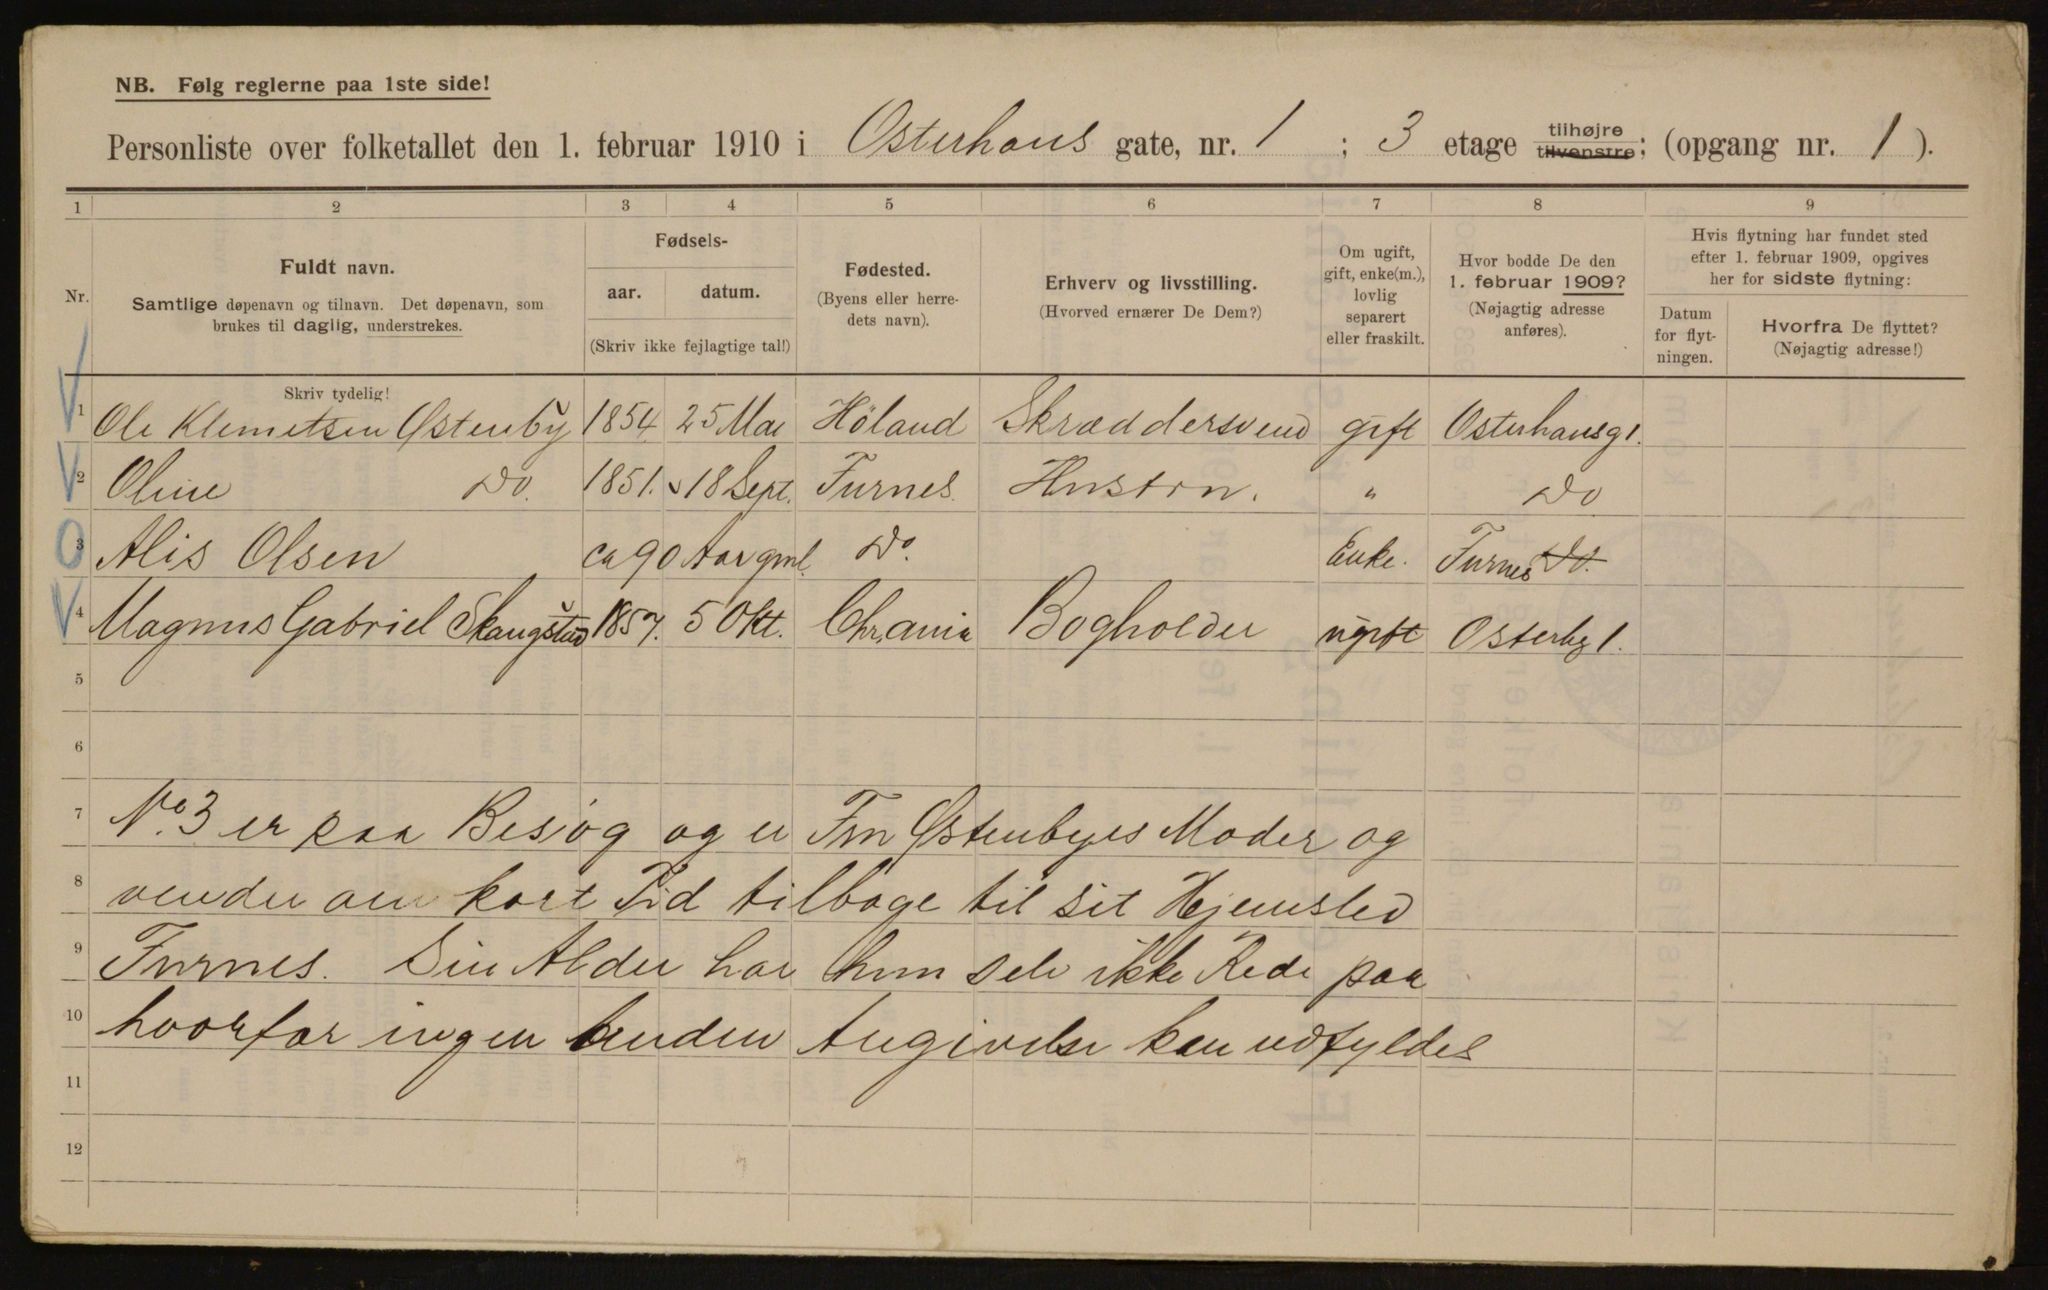 NB. Følg reglerne paa 1ste side!
Personliste over folketallet den 1. februar 1910 i Osterhaus gate, nr. 1 ; 3 etage tilhøjre tilvenstre; (opgang nr. 1 ).
1 2 3 4 5 6 7 8 9
Nr.
Fuldt navn.
Samtlige døpenavn og tilnavn. Det døpenavn, som
brukes til daglig, understrekes.
Fødsels-
aar. datum.
(Skriv ikke fejlagtige tal!)
Fødested.
(Byens eller herre-
dets navn).
Erhverv og livsstilling.
(Hvorved ernærer De Dem?)
Om ugift,
gift, enke(m.),
lovlig
separert
eller fraskilt.
Hvor bodde De den
1. februar 1909?
(Nøjagtig adresse
anføres).
Hvis flytning har fundet sted
efter 1. februar 1909, opgives
her for sidste flytning:
Datum
for flyt-
ningen.
Hvorfra De flyttet?
(Nøjagtig adresse!)
Skriv tydelig!
1 Ole Klemetsen Østenby 1854 25 Mai Höland Skræddersvend gift Osterhausg 1.
2 Oline Do. 1851. 18 Sept. Furnes. Hustru. " Do
3 Alis Olsen ca 90 Aar gml. Do. Enke. Furnes Do.
4 Magnus Gabriel Skaugstad 1857. 5 Okt. Chrania Bogholder ugift Osterhg 1.
5
6
7 No. 3 er paa Besøg og er Fru Østenbyes Moder og
8 vender om kort Tid tilbage til sit Hjemsted
9 Furnes. Sin Alder har hun selv ikke Rede paa
10 hvorfor ingen anden Angivelse kan udfyldes
11
12